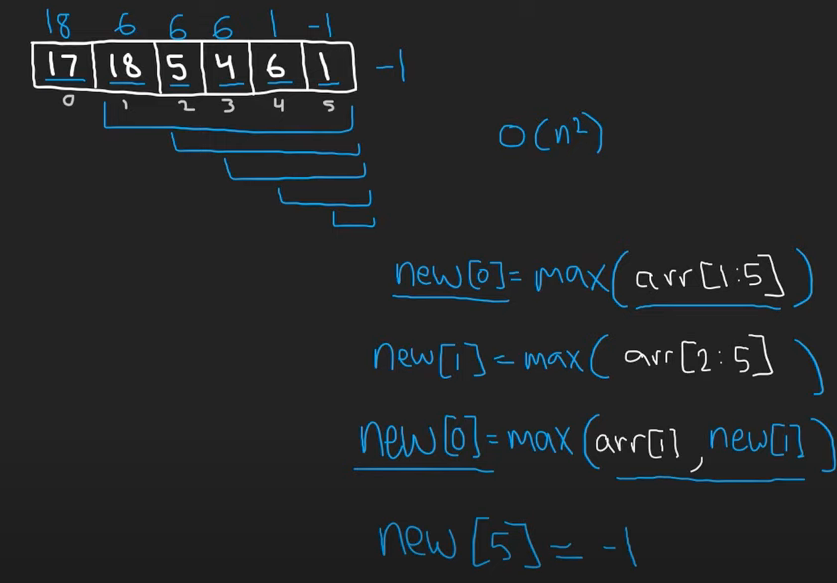 18 6 6 6 1 -1
17 18 5 4 6 1 -1
0 1 2 3 4 5
O(n²)
new[0]=max(arr[1:5])
new[1]=max(arr[2:5])
new[0]=max(arr[1],new[1])
new[5]=-1